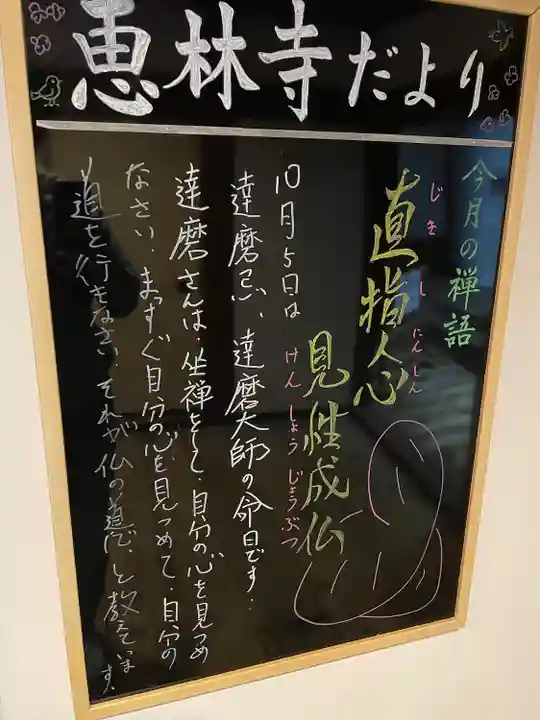 恵林寺だより
今月の禅語
直指人心
じきしにんしん
見性成仏
けんしょうじょうぶつ
10月5日は
達磨忌、達磨大師の命日です…
達磨さんは、坐禅をして、自分の心を見つめ
なさい、まっすぐ自分の心を見つめて、自分の
道を行きなさい、それが仏の道だ、と教えています。